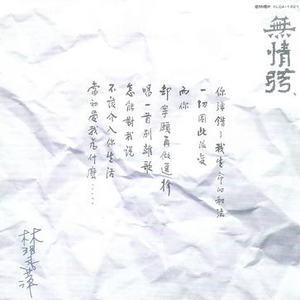 無情弦
你錯了我生命的和弦
一切因此改變
而你
卻寧願再做選擇
唱一首別離歌
怎能對我說
不該介入你生活
當初愛我為什麼……
林